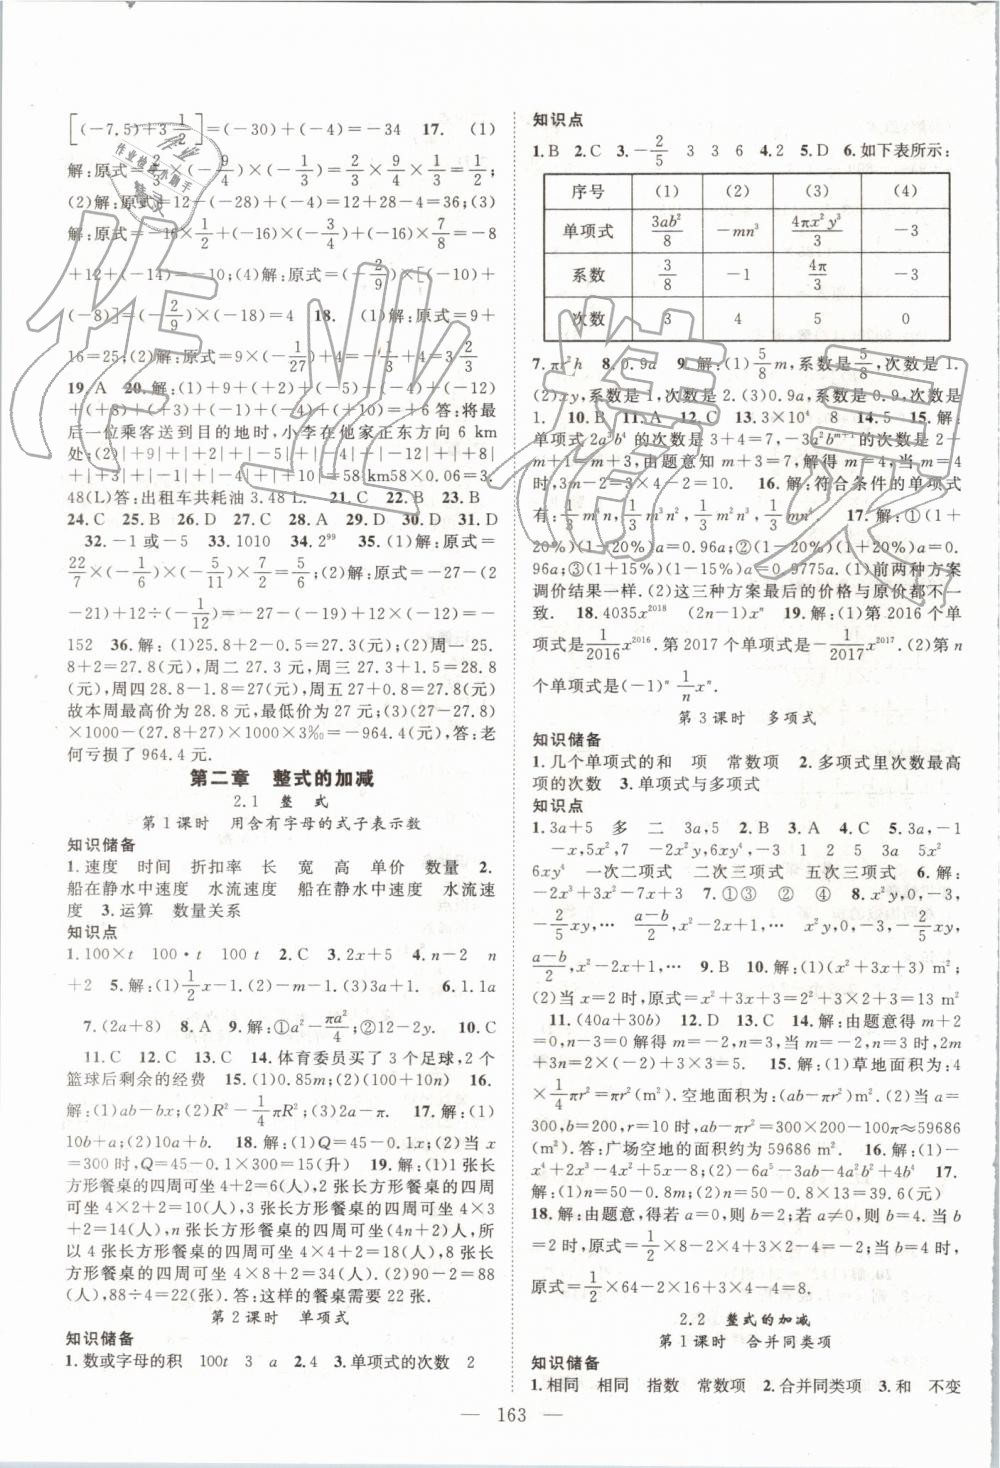 [(-7.5)+3 1/2]=(-30)+(-4)=-34 17. (1)
(2)解:原式=12-(-28)+(-4)=12+28-4=36;(3)
解:原式=-16×1/2+(-16)×(-3/4)+(-16)×7/8=-8
+12+(-14)=-10;(4)解:原式=(-2/9)×[(-10)+
(-8)]=(-2/9)×(-18)=4 18. (1)解:原式=9+
16=25;(2)解:原式=9×(-1/27)+4/3
19.A 20.解:(1)+9+(+2)+(-5)+(-4)+(-12)
+(+8)+(+3)+(-1)+(-4)+(+10)=+6答:将最
后一位乘客送到目的地时,小李在他家正东方向6 km
48(L)答:出租车共耗油3.48 L. 21.C 22.C 23.D
24.C 25.D 26.D 27.C 28.A 29.D 30.D 31.D
32.-1或-5 33.1010 34.2⁹⁹ 35.(1)解:原式=
22/7×(-1/6)×(-5/11)×7=5/3;(2)解:原式=-27-(-2
-21)+12÷(-1/12)=-27+2+21+12×(-12)=-
152 36.解:(1)25.8+2=27.8(元);(2)周一25.
8+2=27.8(元),周二27.3元,周三27.3+1.5=28.8
(元),周四28.8-1.8=27(元),周五27+0.8=27.8(元)
故本周最高价为28.8元,最低价为27元;(3)(27-27.8)
×1000-(27.8+27)×1000×3‰=-964.4(元),答:老
何亏损了964.4元.
第二章 整式的加减
2.1 整 式
第1课时 用含有字母的式子表示数
知识储备
1.速度 时间 折扣率 长 宽 高 单价 数量 2.
船在静水中速度 水流速度 船在静水中速度 水流速
度 3.运算 数量关系
知识点
1.100×t 100·t 100t 2.C 3.2x+5 4.n-2 n
+2 5.解:(1)1/2x-1.(2)-m-1.(3)3a+1. 6.1.1a
7.(2a+8) 8.A 9.解:①a²-πa²/4;②12-2y. 10.C
11.C 12.C 13.C 14.体育委员买了3个足球,2个
篮球后剩余的经费 15.(1)0.85m;(2)2000 16.
解:(1)ab-bx;(2)R²-1/4πR²;(3)1/2a²+1/2b². 17.解:(1)
10b+a;(2)10a+b. 18.解:(1)Q=45-0.1x;(2)当x
=300时,Q=45-0.1×300=15(升) 19.解:(1)1张长
方形餐桌的四周可坐4+2=6(人),2张长方形餐桌的四周
可坐4×2+2=10(人),3张长方形餐桌的四周可坐4×3
+2=14(人),n张长方形餐桌的四周可坐(4n+2)人,所
以4张长方形餐桌的四周可坐4×4+2=18(人),8张长
方形餐桌的四周可坐4×8+2=34(人).(2)90-2=88
(人),88÷4=22(张).答:这样的餐桌需要22张.
第2课时 单项式
知识储备
1.数或字母的积 100t 3 a 2.4 3.单项式的次数 2
知识点
1.B 2.C 3.-2/5 3 3 6 4.2 5.D 6.如下表所示:
序号 (1) (2) (3) (4)
单项式 3ab²/8 -mn³ 4πx²y³/3 -3
系数 3/8 -1 4π/3 -3
次数 3 4 5 0
7.πr²h 8.0.9a 9.解:(1)5/8m,系数是5/8,次数是1.
(2)xy,系数是1,次数是2.(3)0.9a,系数是0.9,次数是
1. 10.B 11.A 12.C 13.3×10⁴ 8 14.5 15.解:
时,3m-2=3×4-2=10. 16.解:符合条件的单项式
有:1/3m⁴n,1/3m³n²,1/3m²n³,1/3mn⁴. 17.解:①(1+
20%)(1-20%)a=0.96a;②(1-20%)(1+20%)a=
0.96a;③(1+15%)(1-15%)a=0.9775a.(1)前两种方案
调价结果一样.(2)这三种方案最后的价格与原价都不一
致. 18.4035x²⁰¹⁸ (2n-1)xⁿ 19.解:(1)第2016个单
项式是1/2016x²⁰¹⁶.第2017个单项式是-1/2017x²⁰¹⁷.(2)第n
个单项式是(-1)ⁿ1/nxⁿ.
第3课时 多项式
知识储备
1.几个单项式的和 项 常数项 2.多项式里次数最高
项的次数 3.单项式与多项式
知识点
1.3a+5 多 二 3a,5 2.B 3.A 4.C 5.3a,-1
-x,5x²,7 -2x²y,6xy⁴ 1 2 5 3a 5x²
6xy⁴ 一次二项式 二次三项式 五次三项式 6.解:
-2x³+3x²-7x+3 7.①③ ②④ 8.x²y,0,-
2/5xy,… (a-b)/2,x²+1,… x²y,0,-2/5xy,
(a-b)/2,x²+1,… 9.B 10.解:(1)(x²+3x+3) m²;
(2)当x=2时,原式=x²+3x+3=2²+3×2+3=13 m²
11.(40a+30b) 12.D 13.C 14.解:由题意得m+2
=0,-n-3=0解得m=-2,n=3,当m=-2,n=3时,2m
+3n=2×(-2)+3×3=5. 15.解:(1)草地面积为:4
×1/4πr²=πr²(m²).空地面积为:(ab-πr²)m².(2)当a=
300,b=200,r=10时,ab-πr²=300×200-100π≈59686
(m²).答:广场空地的面积约为59686 m². 16.解:(1)-
x⁴+2x²+3x-1;(2)-6a⁵-3ab-4a²b²+4b⁴ 17.
解:(1)n=50-0.8m;(2)n=50-0.8×13=39.6(元)
18.解:由题意,得若a=0,则b=2;若a≠0,则b=4.当b
=2时,原式=1/2×8-2×4+3×2-4=-2;当b=4时,
原式=1/2×64-2×16+3×4-4=8.
2.2 整式的加减
第1课时 合并同类项
知识储备
1.相同 相同 指数 常数项 2.合并同类项 3.和 不变
163